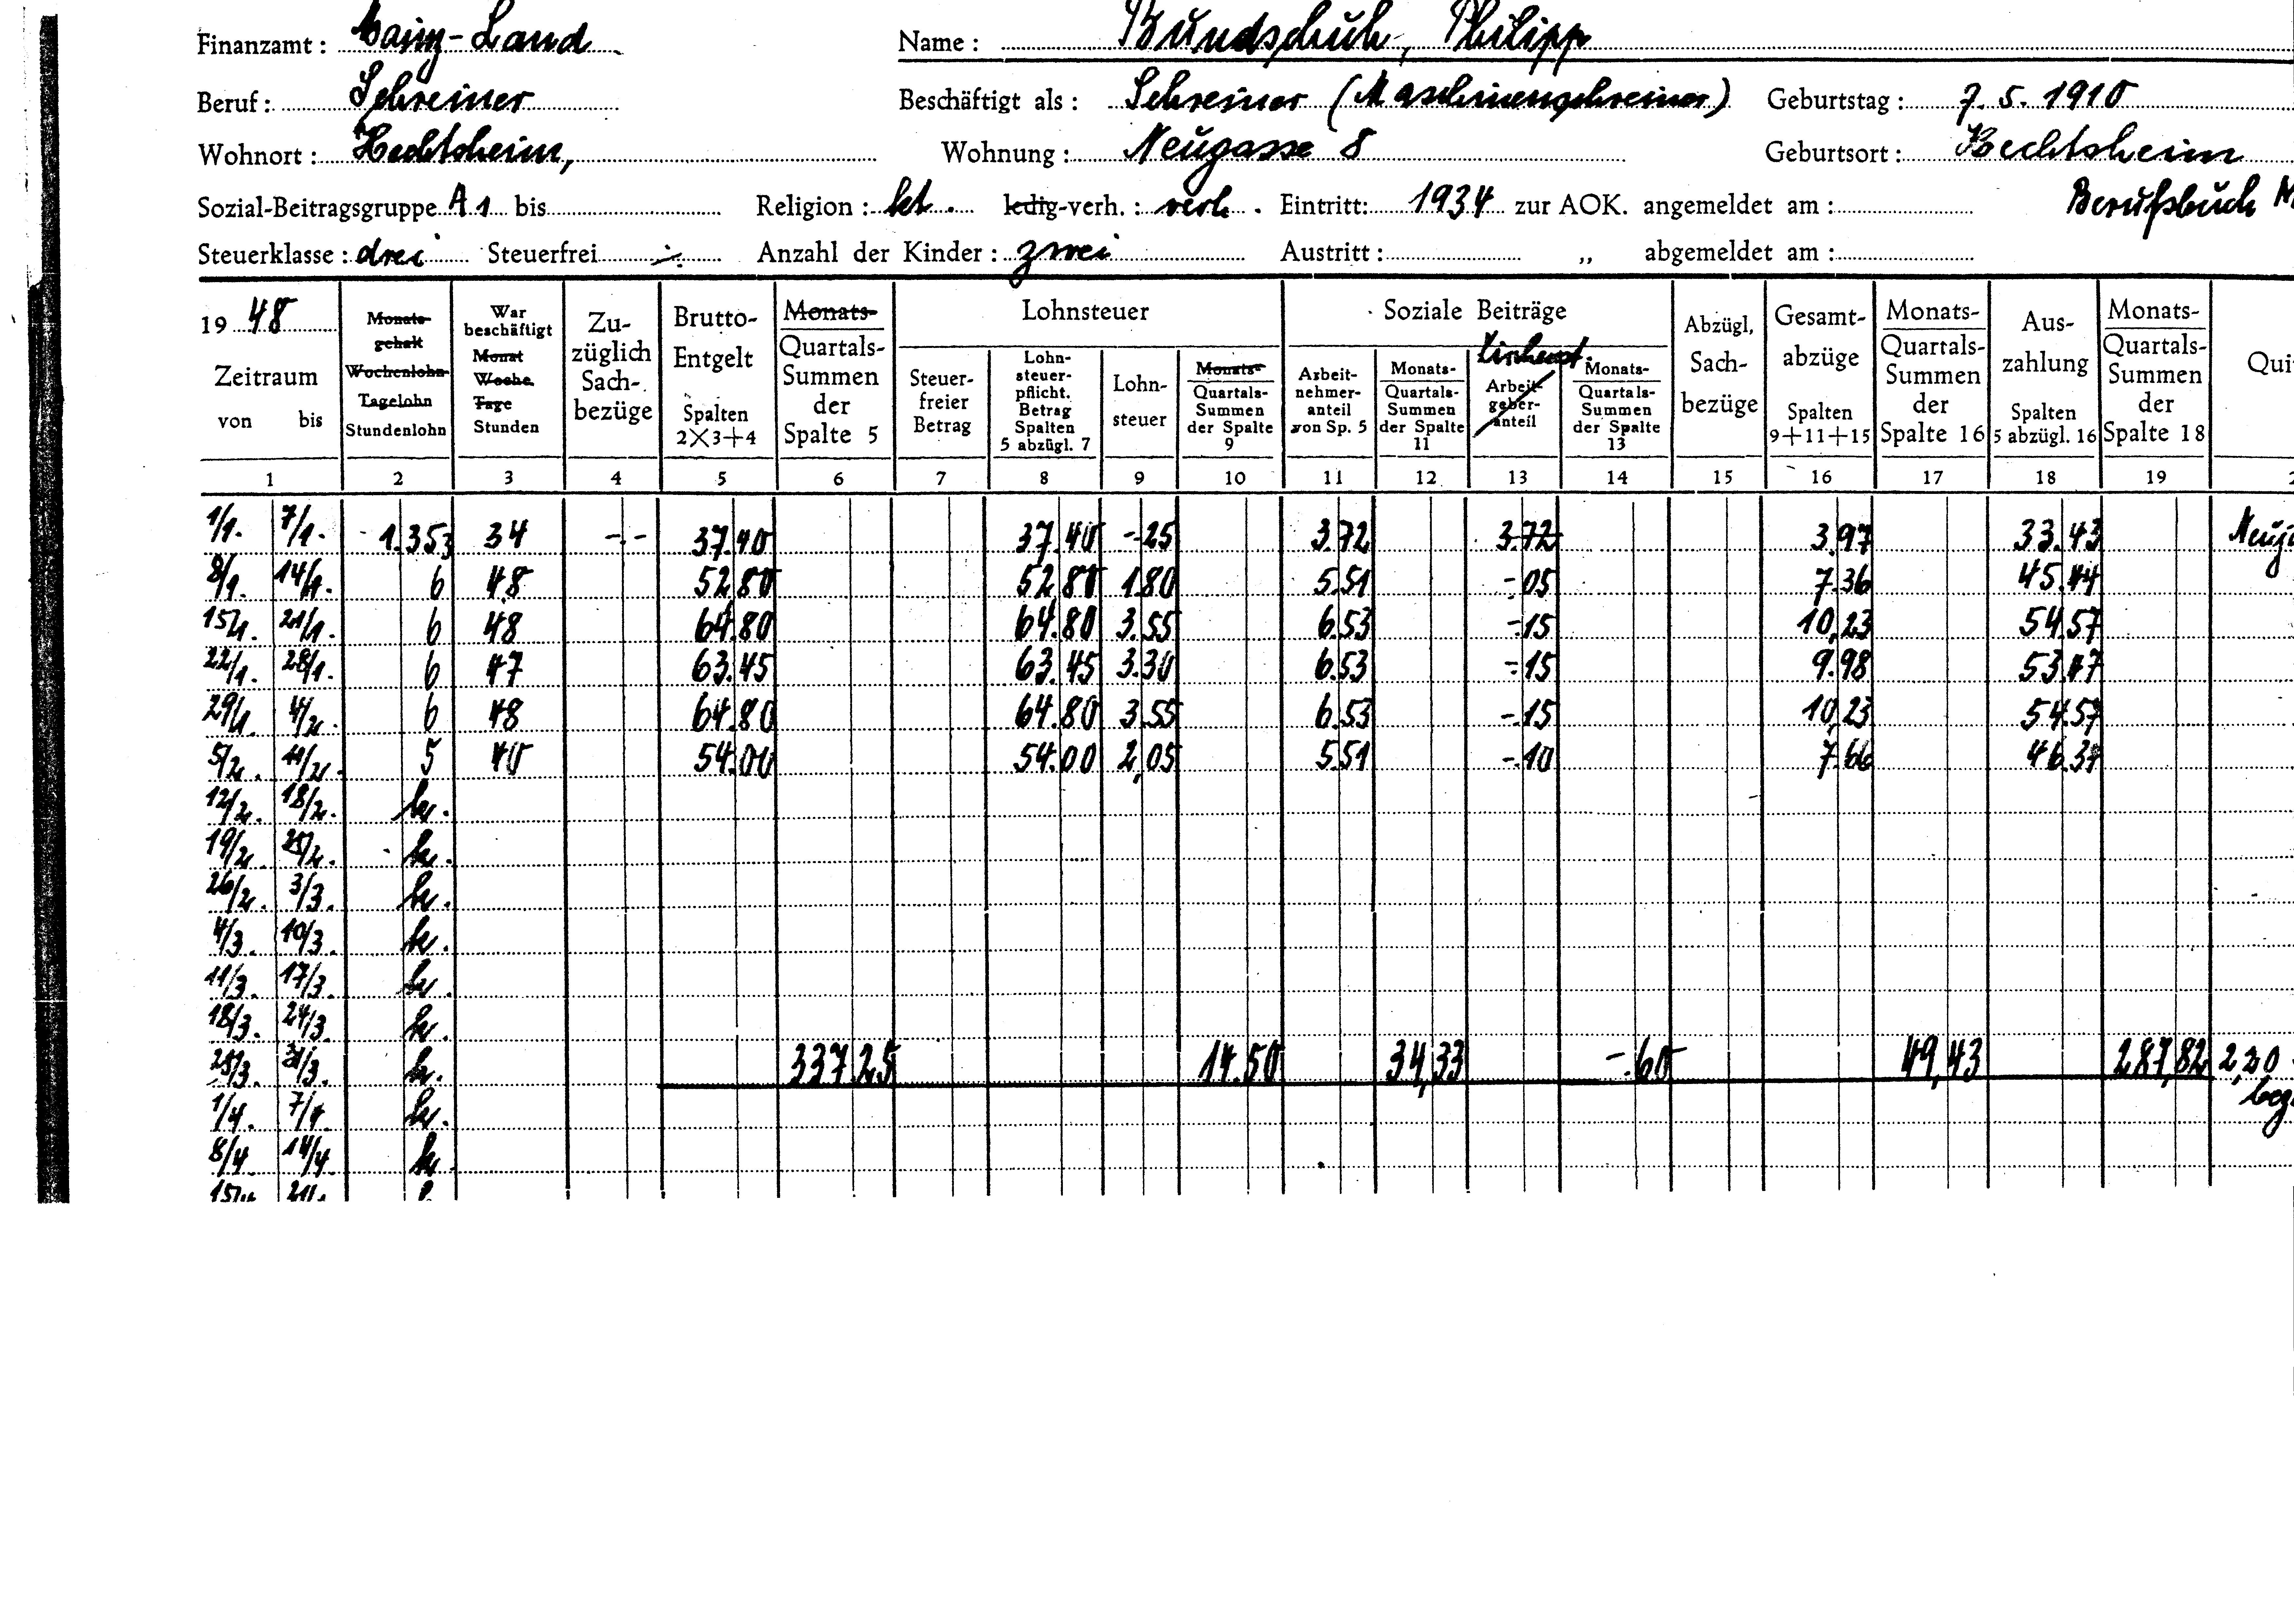 Finanzamt : Mainz-Land Name : Bundschuh, Philipp
Beruf : Schreiner Beschäftigt als : Schreiner (Maschinenschreiner) Geburtstag : 7.5.1910
Wohnort : Hechtsheim, Wohnung : Neugasse 8 Geburtsort : Hechtsheim
Sozial-Beitragsgruppe A 1 bis Religion : kt. ledig-verh. : verh. Eintritt: 1934 zur AOK. angemeldet am : Berufsbuch
Steuerklasse : drei Steuerfrei -.- Anzahl der Kinder : zwei Austritt : „ abgemeldet am :
1948 Zeitraum von bis
Monats-gehalt Wochenlohn Tagelohn Stundenlohn
War beschäftigt Monat Woche Tage Stunden
Zu-züglich Sach-bezüge
Brutto-Entgelt Spalten 2×3+4
Monats- Quartals-Summen der Spalte 5
Lohnsteuer
Steuer-freier Betrag
Lohn-steuer-pflicht. Betrag Spalten 5 abzügl. 7
Lohn-steuer
Monats- Quartals-Summen der Spalte 9
Soziale Beiträge
Arbeit-nehmer-anteil von Sp. 5
Monats- Quartals-Summen der Spalte 11
Kirchenst. Arbeit-geber-anteil
Monats- Quartals-Summen der Spalte 13
Abzügl, Sach-bezüge
Gesamt-abzüge Spalten 9+11+15
Monats- Quartals-Summen der Spalte 16
Aus-zahlung Spalten 5 abzügl. 16
Monats- Quartals-Summen der Spalte 18
Qui
1 2 3 4 5 6 7 8 9 10 11 12 13 14 15 16 17 18 19 2
1/1. 7/1. 1.353 34 -.- 37.40 37.40 -.25 3.72 3.72 3.97 33.43
8/1. 14/1. 6 48 52.80 52.80 1.80 5.51 -.05 7.36 45.44
15/1. 21/1. 6 48 64.80 64.80 3.55 6.53 -.15 10,23 54.57
22/1. 28/1. 6 47 63.45 63.45 3.30 6.53 -.15 9.98 53.47
29/1. 4/2. 6 48 64.80 64.80 3.55 6.53 -.15 10,23 54.57
5/2. 11/2. 5 40 54.00 54.00 2,05 5.51 -.10 7.66 46.34
12/2. 18/2. kr.
19/2. 25/2. kr.
26/2. 3/3. kr.
4/3. 10/3. kr.
11/3. 17/3. kr.
18/3. 24/3. kr.
25/3. 31/3. kr. 337.25 14.50 34,33 -.60 49,43 287,82 2,20
1/4. 7/4. kr.
8/4. 14/4. kr.